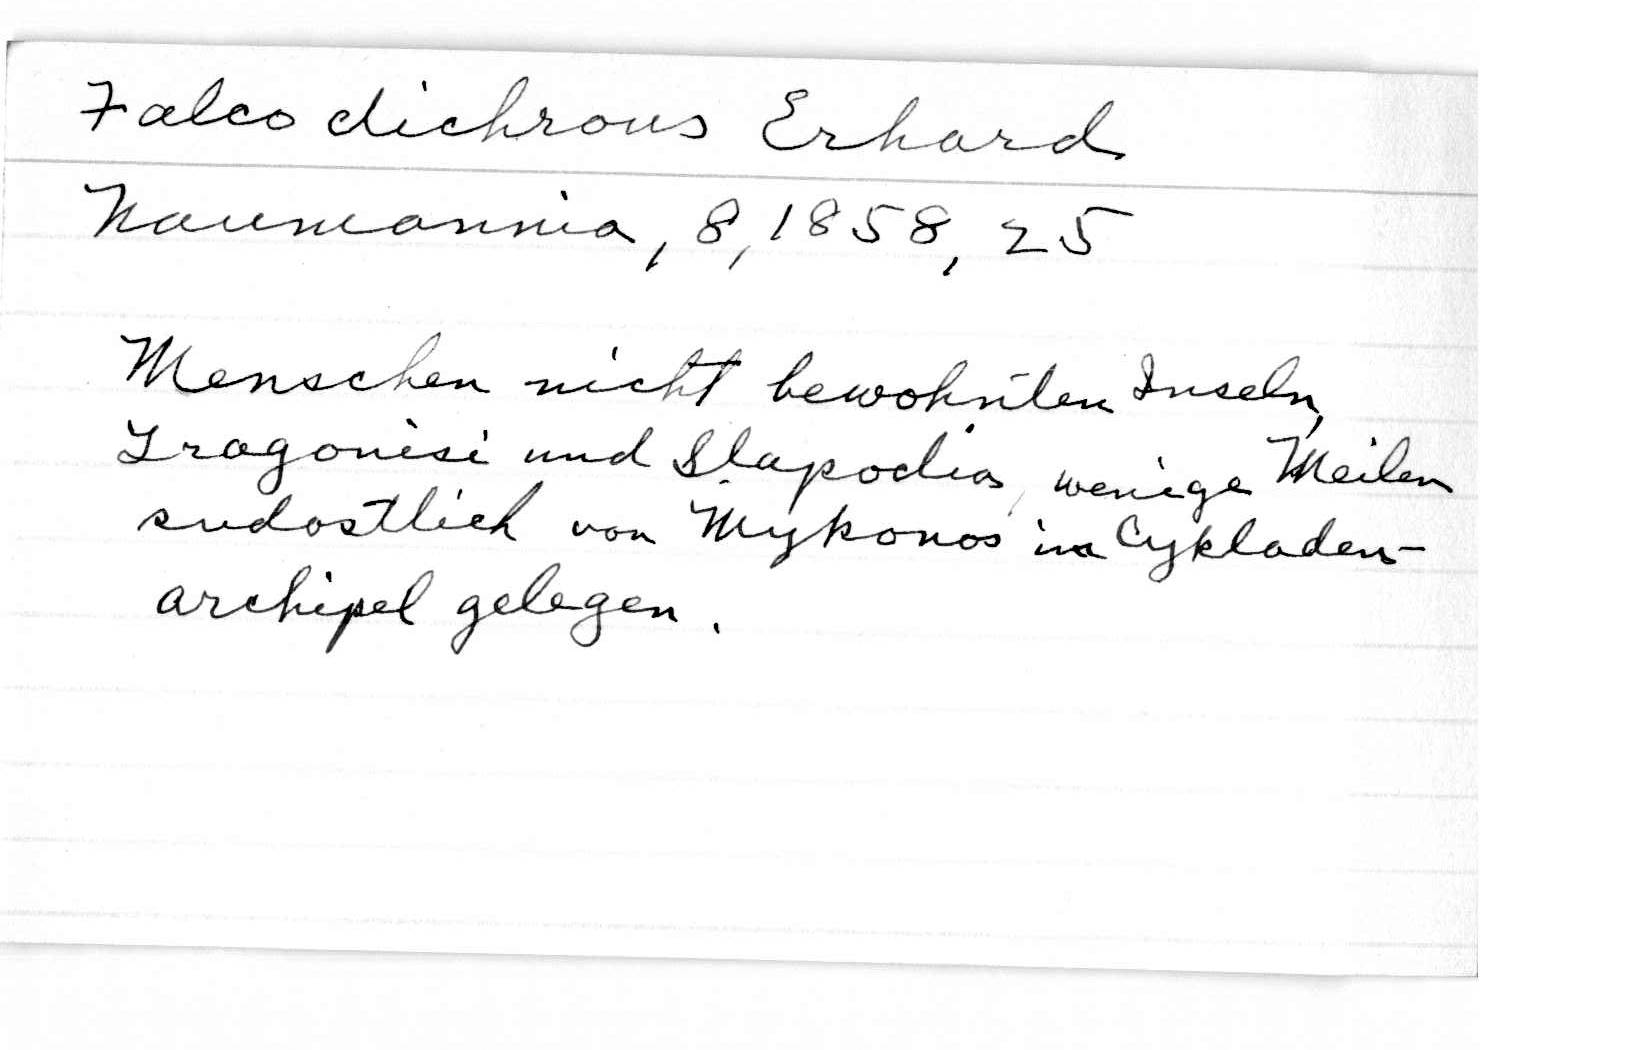 Falco dichrous Erhard
Naumannia, 8, 1858, 25
Menschen nicht bewohnten Inseln,
Tragonisi und Stapodia, wenige Meilen
sudostlich von Mykonos im Cykladen-
archipel gelegen.